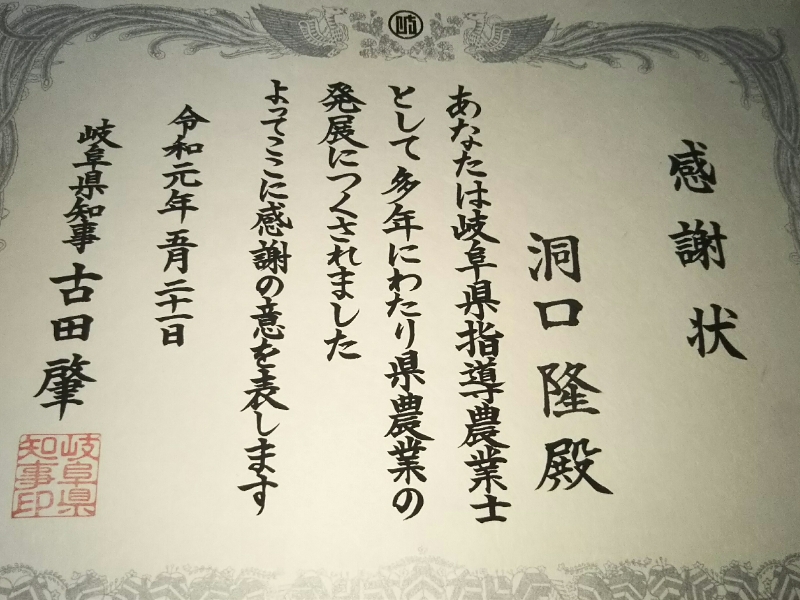 岐
感謝状
洞口隆殿
あなたは岐阜県指導農業士
として多年にわたり県農業の
発展につくされました
よってここに感謝の意を表します
令和元年五月二十一日
岐阜県知事 古田肇
岐阜県
知事印